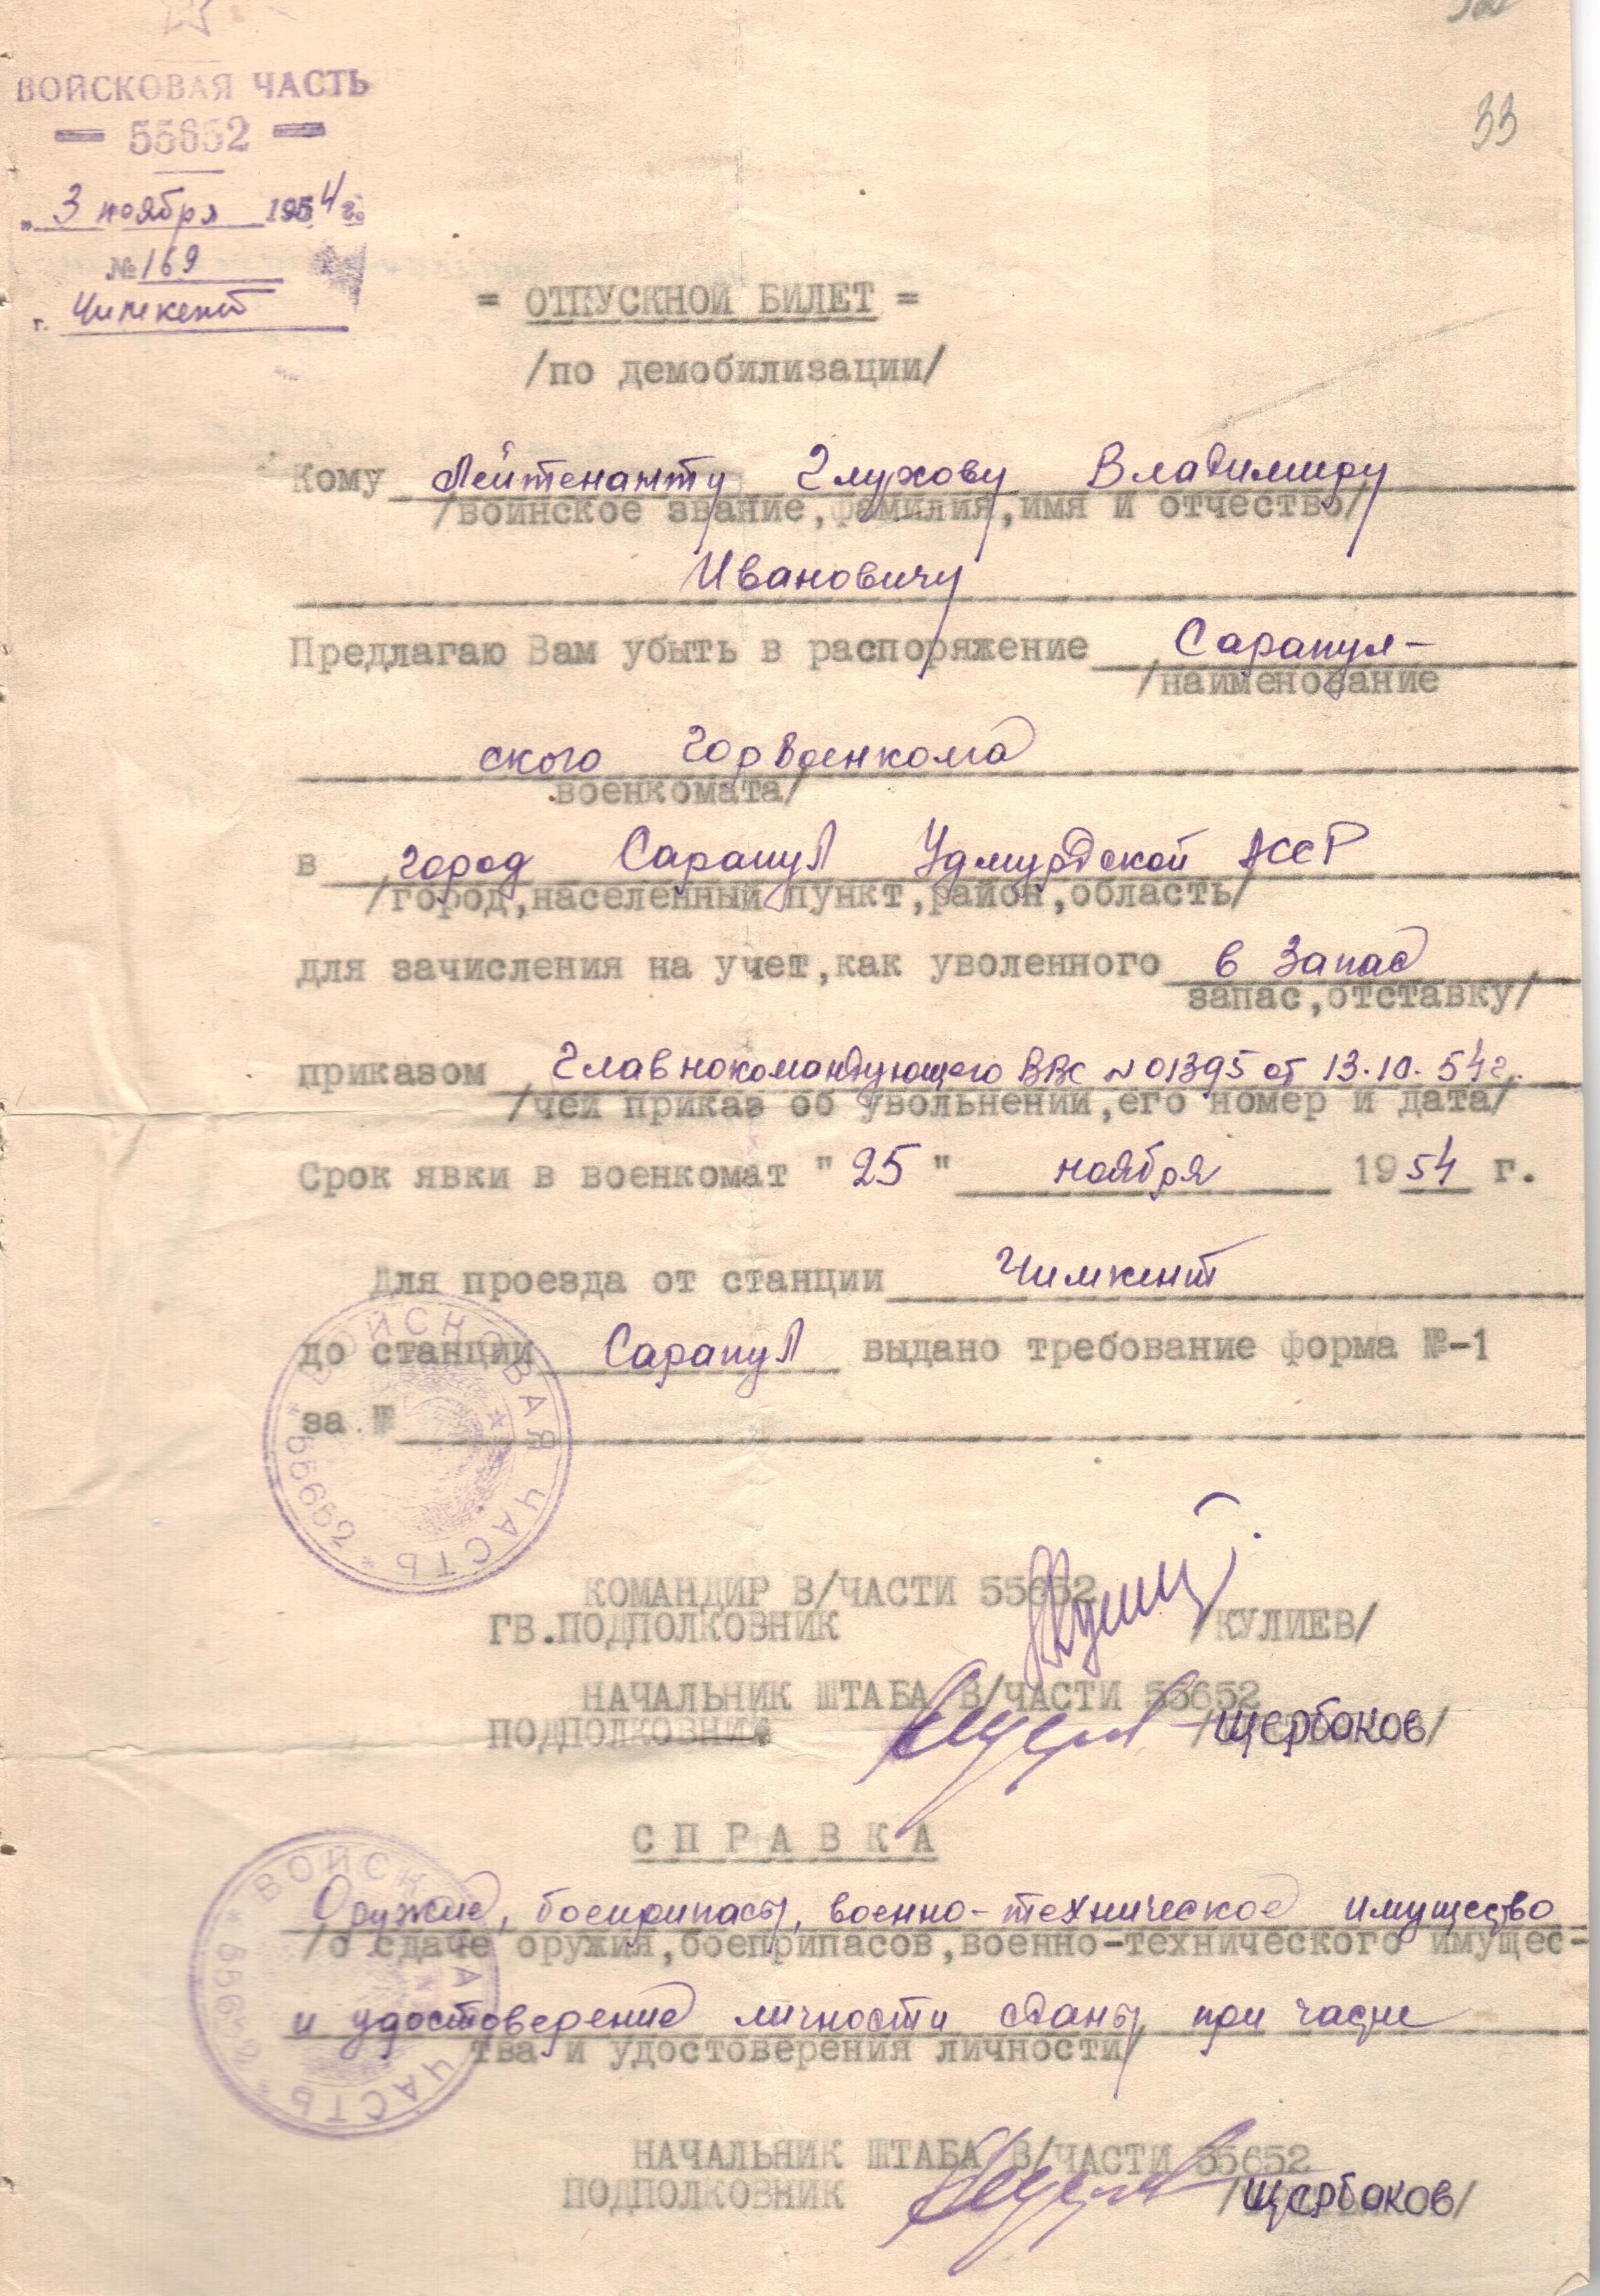 33
ВОЙСКОВАЯ ЧАСТЬ
— 55652 —
„ 3 ноября 1954 г.
№ 169
г. Чимкент
= ОТПУСКНОЙ БИЛЕТ =
/по демобилизации/
Кому Лейтенанту Глухову Владимиру
/воинское звание,фамилия,имя и отчество/
Ивановичу
Предлагаю Вам убыть в распоряжение Сарапул-
/наименование
ского Горвоенкома
военкомата/
в город Сарапул Удмуртской АССР
/город,населенный пункт,район,область/
для зачисления на учет,как уволенного в запас
запас,отставку/
приказом Главнокомандующего ВВС N 01395 от 13.10.54г.
/чей приказ об увольнении,его номер и дата/
Срок явки в военкомат "25" ноября 1954 г.
Для проезда от станции Чимкент
до станции Сарапул выдано требование форма №-1
за №
* ВОЙСКОВАЯ ЧАСТЬ * 55652
КОМАНДИР В/ЧАСТИ 55652
ГВ.ПОДПОЛКОВНИК /КУЛИЕВ/
НАЧАЛЬНИК ШТАБА В/ЧАСТИ 55652
ПОДПОЛКОВНИК /Щербаков/
СПРАВКА
Оружие, боеприпасы, военно-техническое имущество
/о сдаче оружия,боеприпасов,военно-технического имущес-
и удостоверение личности сданы при части
тва и удостоверения личности/
* ВОЙСКОВАЯ ЧАСТЬ * 55652
НАЧАЛЬНИК ШТАБА В/ЧАСТИ 55652
ПОДПОЛКОВНИК /Щербаков/